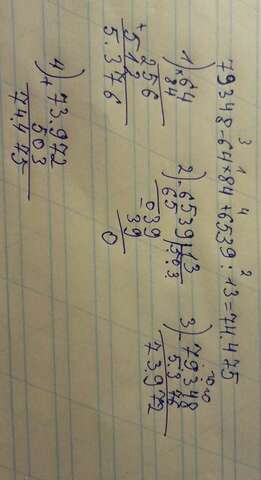 3 1 4 2
79348-64×84+6539:13=74.475
1) ×64
84
256
+ 512
5.376
2) -6539|13
65 503
-39
39
0
3) -79.348
5.376
73.972
4) 73.972
+ 503
74.475